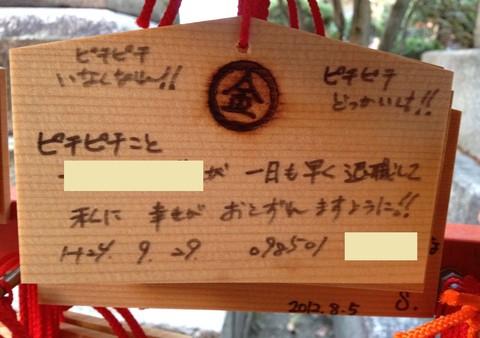 金
ピチピチ
いなくなれ〜!!
ピチピチ
どっかいけ!!
ピチピチこと
が 一日も早く 退職して
私に 幸せが おとずれますように!!
H24. 9. 29. 098501
2012.8.5 S.